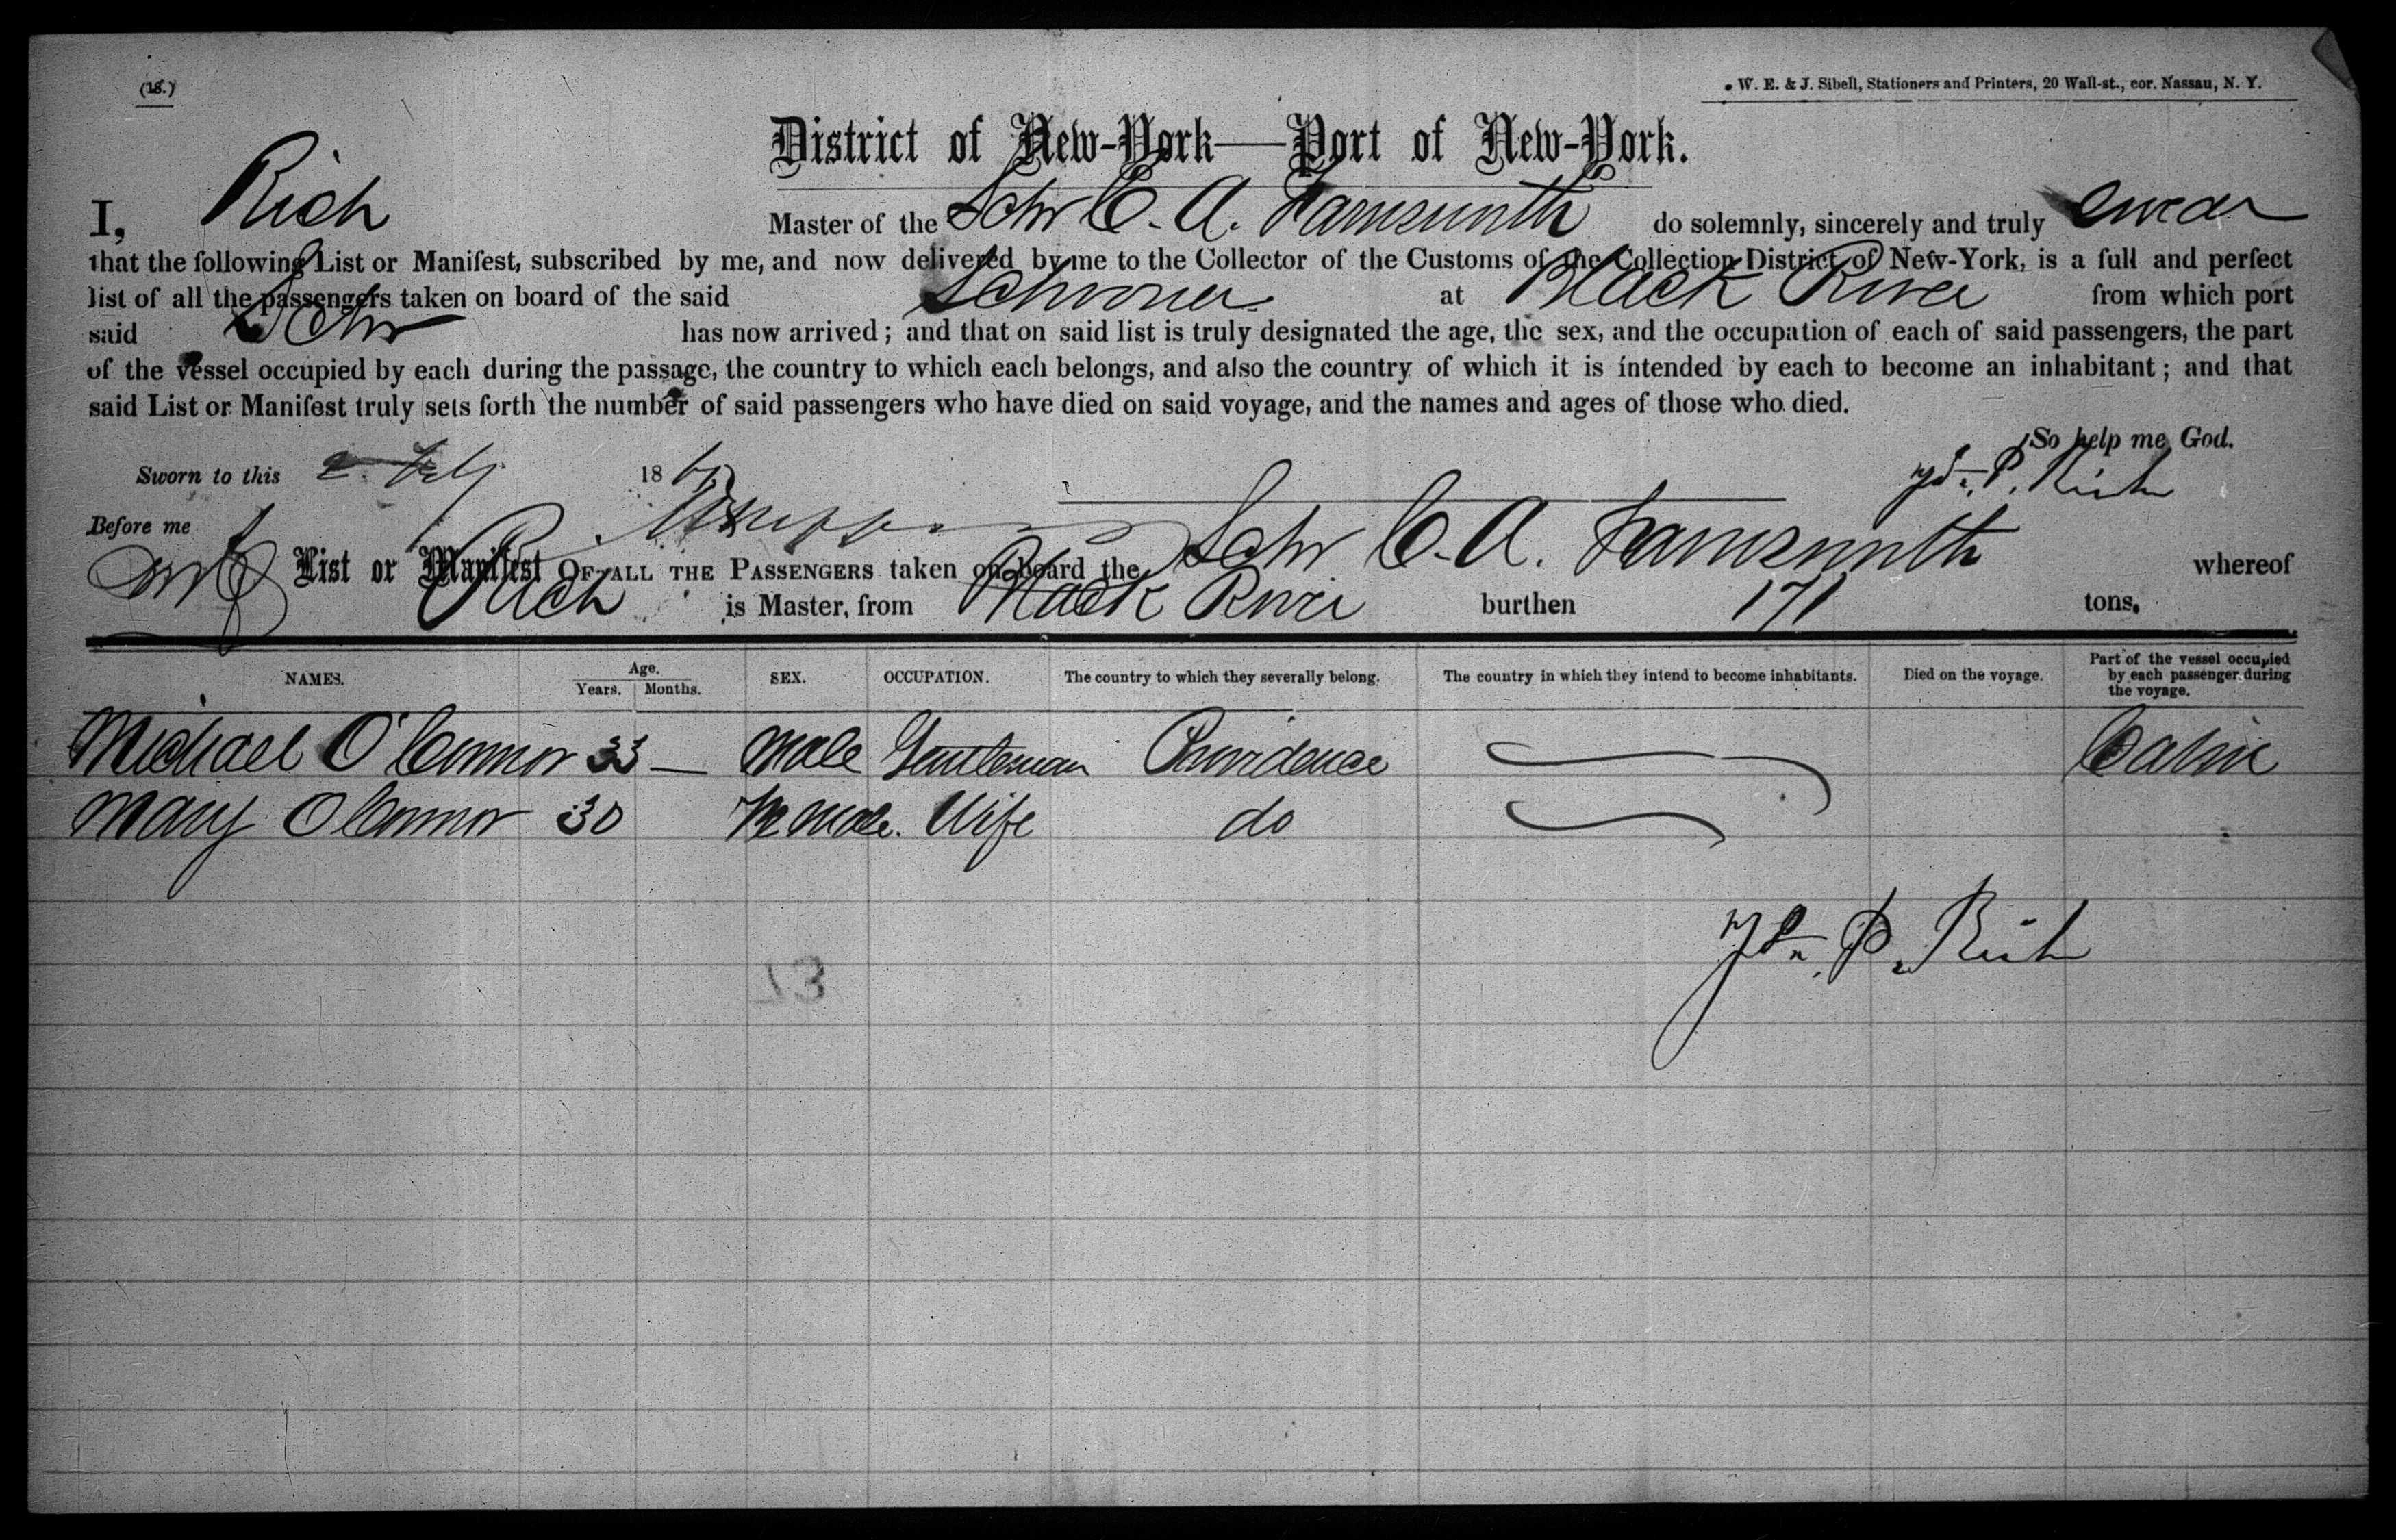 (18.)
W. E. & J. Sibell, Stationers and Printers, 20 Wall-st., cor. Nassau, N. Y.
District of New-York—Port of New-York.
I, Rich Master of the Schr C. A. Farnsworth do solemnly, sincerely and truly swear
that the following List or Manifest, subscribed by me, and now delivered by me to the Collector of the Customs of the Collection District of New-York, is a full and perfect
list of all the passengers taken on board of the said Schooner at Black River from which port
said Schr has now arrived; and that on said list is truly designated the age, the sex, and the occupation of each of said passengers, the part
of the vessel occupied by each during the passage, the country to which each belongs, and also the country of which it is intended by each to become an inhabitant; and that
said List or Manifest truly sets forth the number of said passengers who have died on said voyage, and the names and ages of those who died.
So help me God.
Sworn to this 2 Feby 186 P. Rich
Before me
List or Manifest OF ALL THE PASSENGERS taken on board the Schr C. A. Farnsworth whereof
Rich is Master, from Black River burthen 171 tons.
NAMES. Age. Years. Months. SEX. OCCUPATION. The country to which they severally belong. The country in which they intend to become inhabitants. Died on the voyage. Part of the vessel occupied by each passenger during the voyage.
Michael O'Connor 33 — Male Gentleman Providence Cabin
Mary O Connor 30 Female. Wife do
P. Rich